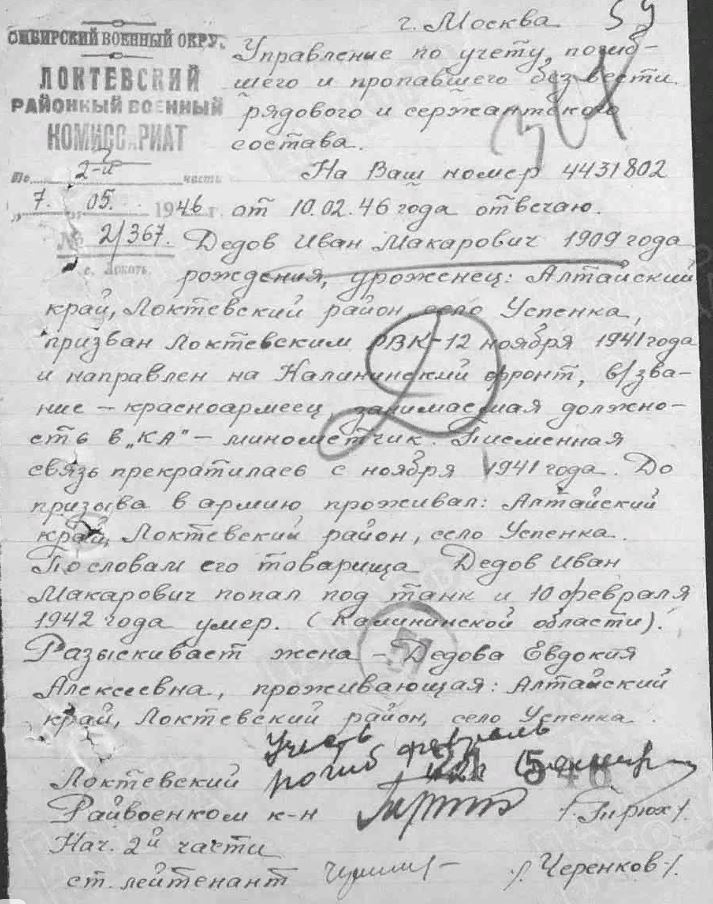 59
г. Москва
СИБИРСКИЙ ВОЕННЫЙ ОКРУГ
ЛОКТЕВСКИЙ
РАЙОННЫЙ ВОЕННЫЙ
КОМИССАРИАТ
По 2-й часть
„7„ 05. 1946 г.
№ 2/367.
с. Локоть
Управление по учету, погиб-
шего и пропавшего без вести
рядового и сержантского
состава.
На Ваш номер 4431802
от 10.02.46 года отвечаю.
Дедов Иван Макарович 1909 года
рождения, уроженец: Алтайский
край, Локтевский район, село Успенка,
призван Локтевским РВК-12 ноября 1941 года
и направлен на Калининский фронт, в/зва-
ние – красноармеец, занимаемая должно-
сть в „КА" – минометчик. Писменная
связь прекратилась с ноября 1941 года. До
призыва в армию проживал: Алтайский
край, Локтевский район, село Успенка.
По словам его товарища Дедов Иван
Макарович попал под танк и 10 февраля
1942 года умер. (Калининской области).
Разыскивает жена – Дедова Евдокия
Алексеевна, проживающая: Алтайский
край, Локтевский район, село Успенка.
Учесть
погиб февраль
42г
21 5 46
Локтевский
Райвоенком к-н /.Гирюх/.
Нач. 2й части
ст. лейтенант /.Черенков./.